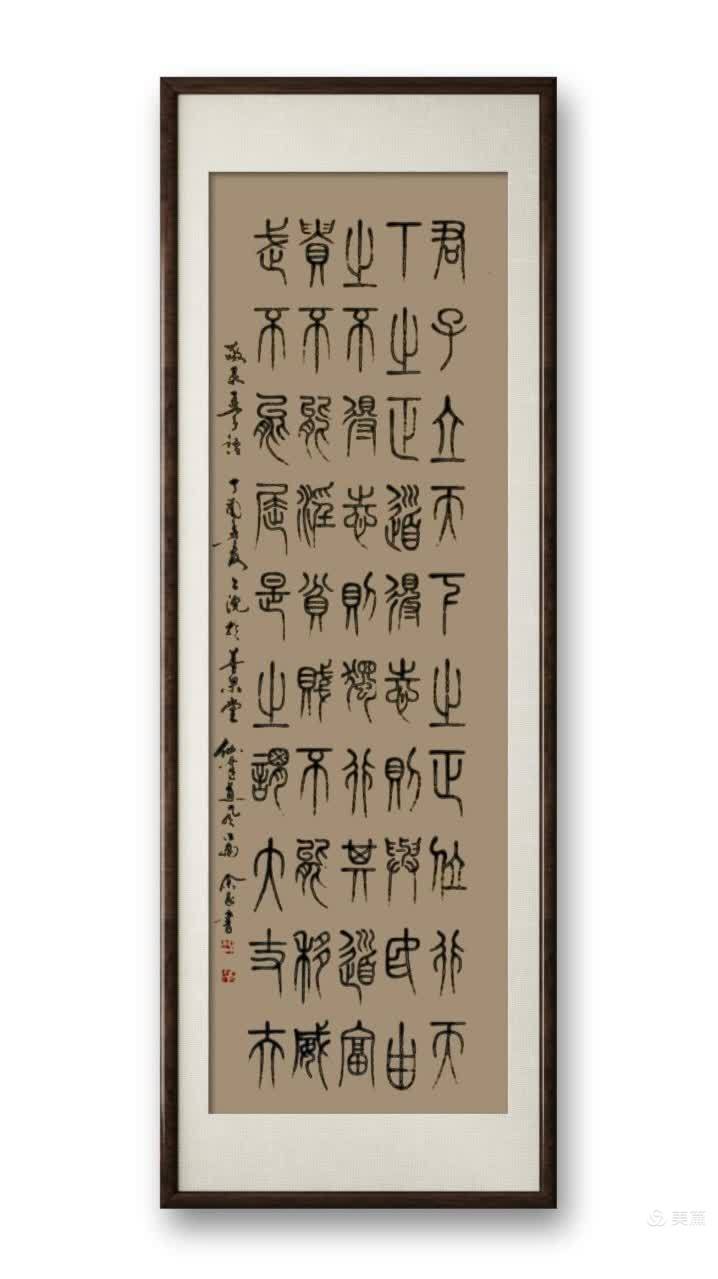 君子立天下之正位行天
下之正道得志則與民由
之不得志則獨行其道富
貴不能淫貧賤不能移威
武不能屈是之謂大丈夫
敬孟子語 丁酉上浣於善果堂 書
美篇